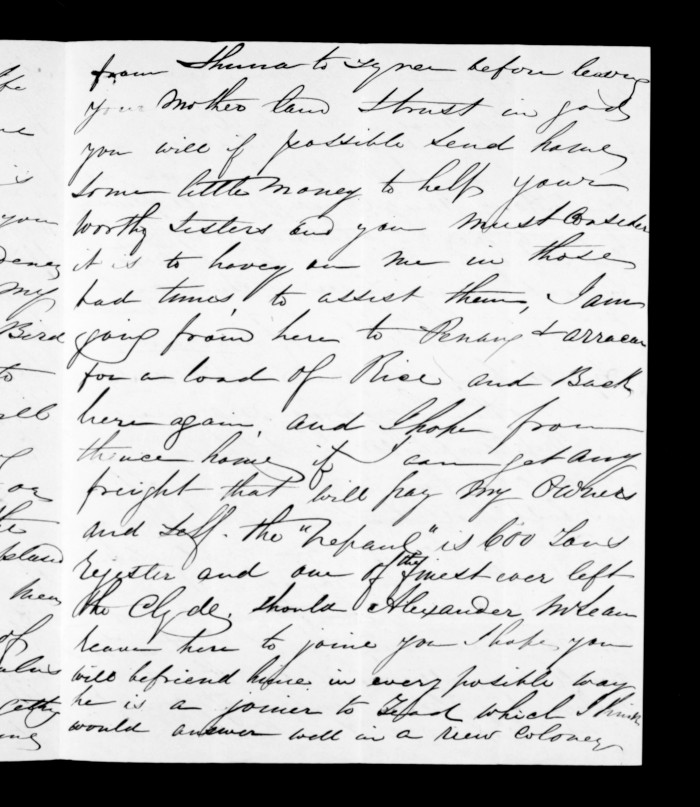 from Shuna to Tyree before leaving
your mother land I trust in god
you will if possible send home
some little money to help your
worthy sisters and you must Consider
it is to havey on me in those
bad times, to assist them, I am
going from here to Penang & arracan
for a load of Rice and Back
here again, and I hope from
thence home if I can get any
freight that will pay my Owners
and self. the "Nepaul" is 600 Tons
Register and one of the finest ever left
the Clyde. Should Alexander McLean
leave here to joine you I hope you
will befriend hime in every posible way
he is a joiner to Trad which I think
would answer well in a new Coloney
you
My
Bird
to
of